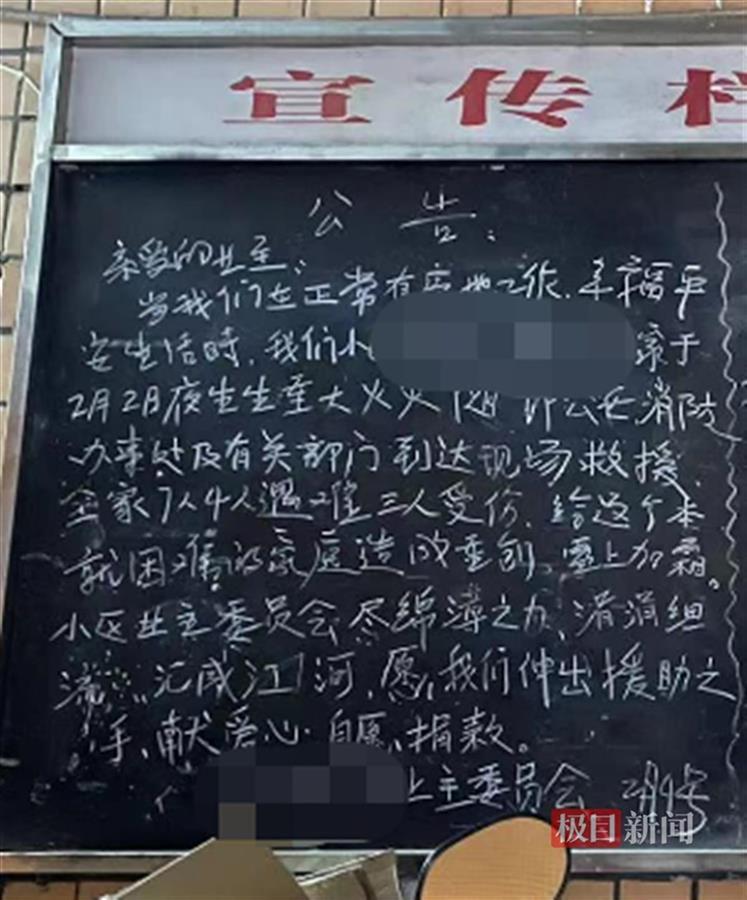 宣传栏
公告:
亲爱的业主:
当我们在正常有 工作、幸福平
安生活时,我们小 家于
2月2日夜生生重大火灾 公安消防
办事处及有关部门到达现场救援,
全家7人4人遇难三人受伤,给这个本
就困难的家庭造成重创,雪上加霜。
小区业主委员会尽绵薄之力、涓涓细
流,汇成江河,愿我们伸出援助之
手,献爱心 自愿捐款。
业主委员会 2月4号
极目新闻